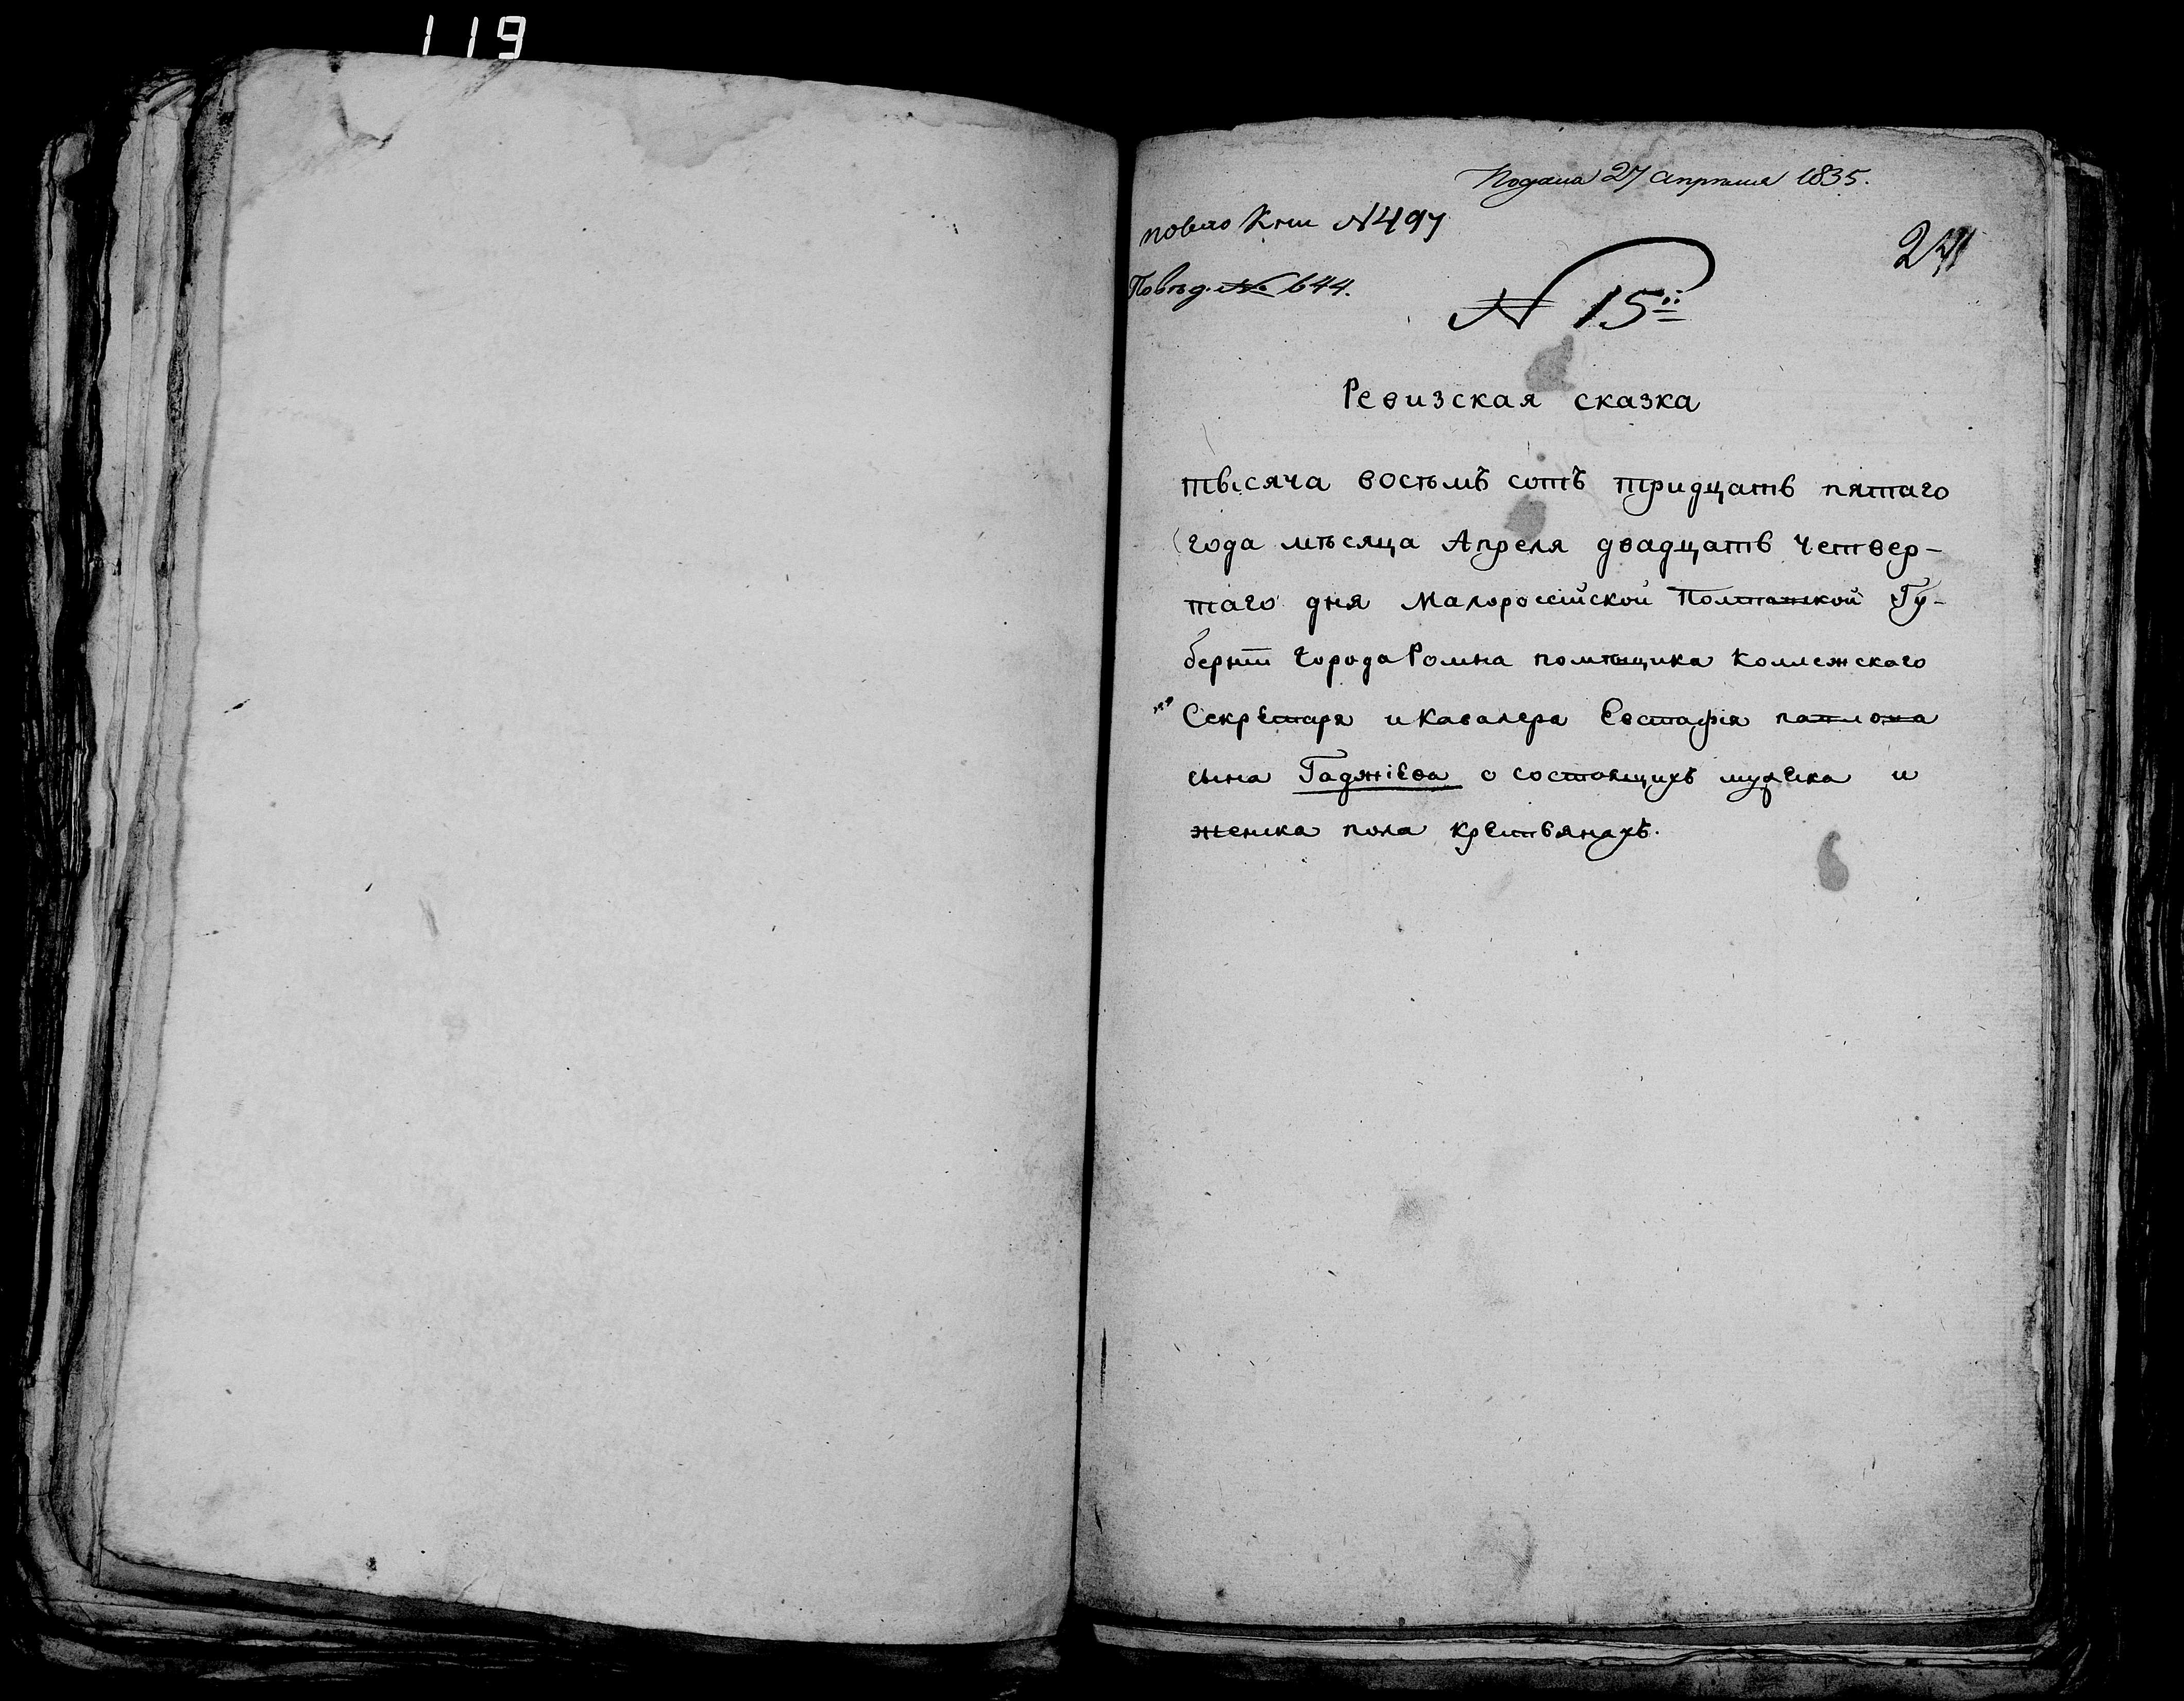 119
Подана 27 апрѣля 1835.
по вед. № 644.
№ 15й
Ревизская сказка
тысяча восемъ сотъ тридцать пятаго
года мѣсяца Апреля двадцать четвер-
таго дня Малороссійской Полтавской Гу-
берніи города Ромна помѣщика Коллежскаго
Секретаря и Кавалера Евстафія Павлова
сына Гаджіева о состоящихъ мужеска и
женска пола крестьянахъ.